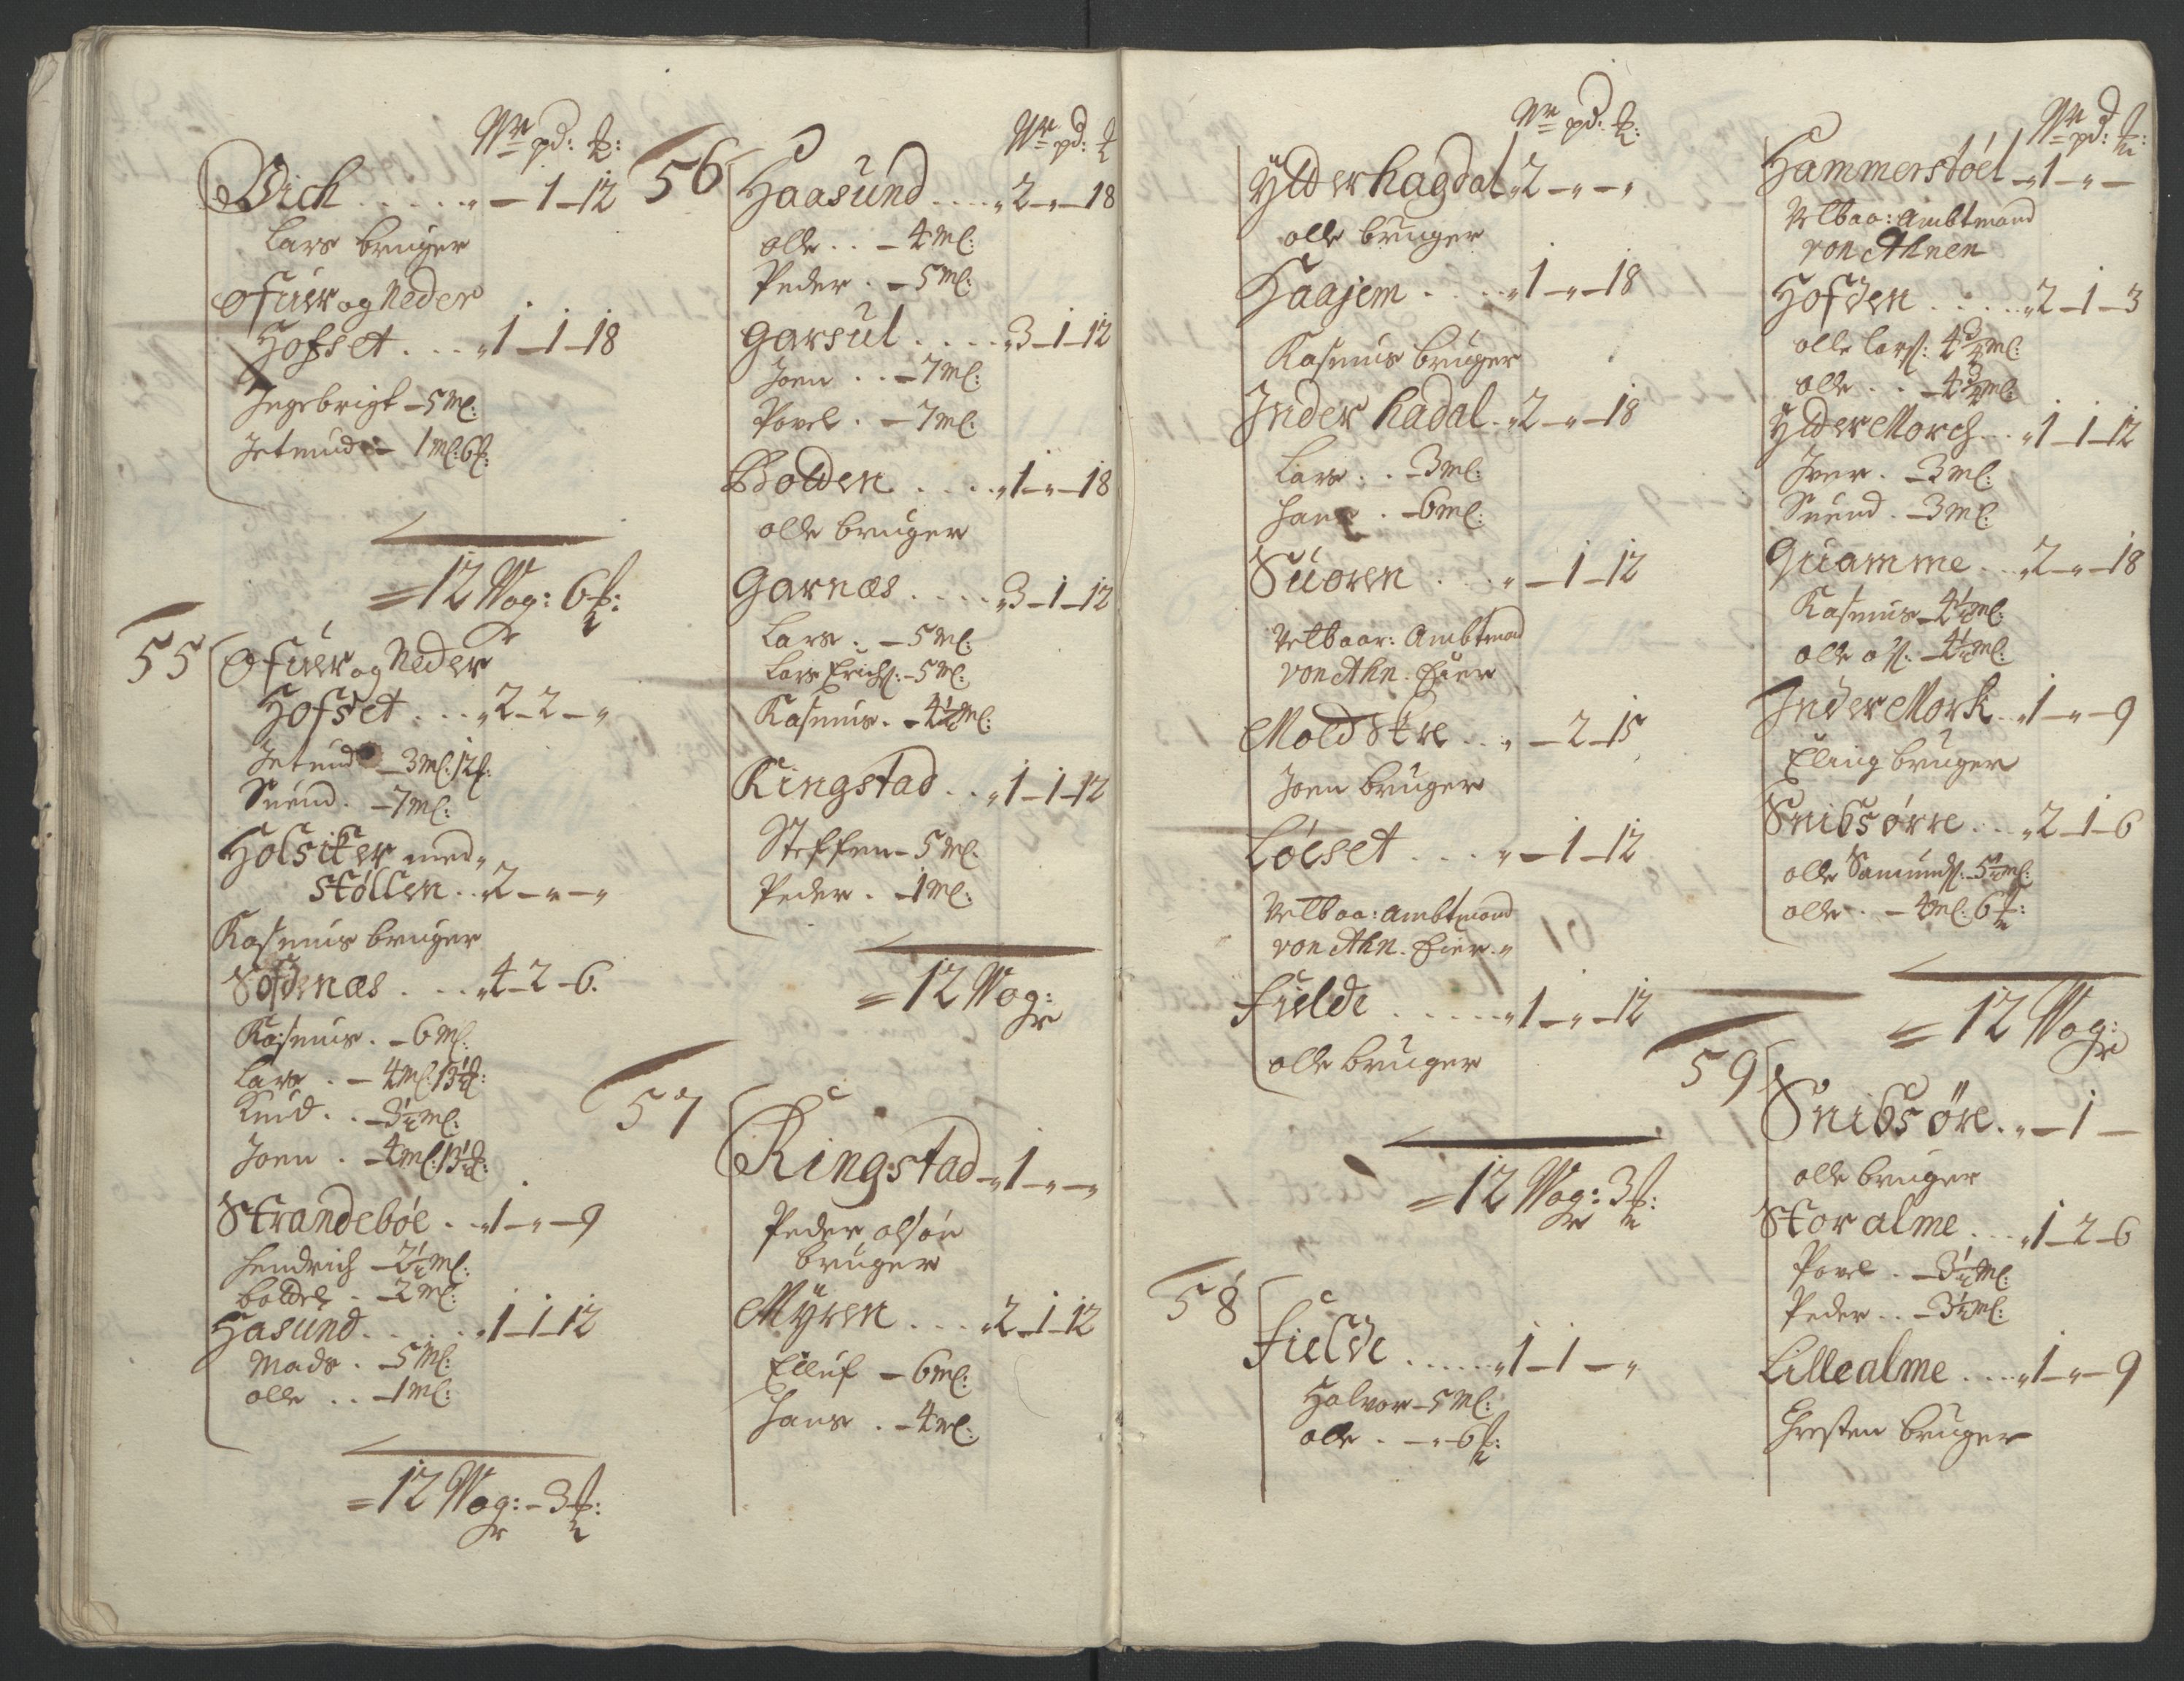 Wr pd: ℔:
Vich . . . . . „ – 1 – 12
Lars bruger
Ofuer og Neder
Hofset . . . „ 1 – 1 – 18
Ingebrigt – 5 Ml:
Jetmund – 1 Ml: 6 ℔:
= 12 Wog: 6 ℔:
55
Ofuer og Neder
Hofset . . . „ 2 – 2 – „
Jetmund – 3 Ml: 12 ℔:
Suend . – 7 Ml:
Holsiter med
Støllen . . 2 – „ – „
Rasmus bruger
Sofdenæs . . . „ 4 – 2 – 6.
Rasmus . – 6 Ml:
Lars . – 4 Ml: 13½ ℔:
Knud . . – 3½ Ml:
Joen . – 4 Ml: 13½ ℔:
Strandebøe . . „ 1 – „ – 9
Hendrich – 2½ Ml:
Boldel . – 2 Ml:
Hasund . . . . . 1 – 1 – 12
Mads . – 5 Ml:
Olle . . – 1 Ml:
= 12 Wog: – 3 ℔:
Wr pd: ℔
56
Haasund . . . . „ 2 – „ – 18
Olle . . – 4 Ml:
Peder . – 5 Ml:
Garsul . . . . „ 3 – 1 – 12
Joen . . – 7 Ml:
Povel . – 7 Ml:
Botten . . . . „ 1 – „ – 18
Olle bruger
Garnæs . . . . „ 3 – 1 – 12
Lars . – 5 Ml:
Lars Erichs: – 5 Ml:
Rasmus . – 4½ Ml:
Ringstad . . „ 1 – 1 – 12
Steffen – 5 Ml.
Peder . – 1 Ml:
= 12 Wog:
57
Ringstad – „ 1 – „ – „
Peder olsøn
bruger
Myren . . . „ 2 – 1 – 12
Elluf – 6 Ml:
Hans . – 4 Ml:
Wr pd: ℔:
Ytterhagdal „ 2 – „ – „
Olle bruger
Haajem . . . „ 1 – „ – 18
Rasmus bruger
Inder hadal . „ 2 – „ – 18
Lars . . – 3 Ml:
Hans . – 6 Ml:
Suoren . . . „ – 1 – 12
Vetbaar: Ambtmand
von Ahn. Eier
Moldskre . . „ – 2 – 15
Joen bruger
Løeset . . . „ – 1 – 12
Vetbaa: Ambtmand
von Ahn. Eier. „
Fielde . . . . . „ 1 – „ – 12
Olle bruger
= 12 Wog: 3 ℔:
58
Fielde . . . . . „ 1 – 1 – „
Halvor – 5 Ml:
Olle . – „ – 6 ℔:
Wr pd: ℔:
Hammerstøel – „ 1 – „ –
Vetbaa: Ambtmand
von Ahnen
Hofden . . . . . „ 2 – 1 – 3
Olle Lars: 4¾ Ml:
Olle . . – 4¾ Ml:
Ytter Morch . . „ 1 – 1 – 12
Iver . – 3 Ml:
Suend . – 3 Ml:
Quamme . . „ 2 – „ – 18
Rasmus – 4½ Ml:
Olle ols: – 4½ Ml:
Inder Mork . . „ 1 – „ – 9
Elling bruger
Snibsørre . . . „ 2 – 1 – 6
Olle Samunds: – 5½ Ml:
Olle . – 4 Ml: 6 ℔:
= 12 Wog:
59
Snibsøre . „ – 1 –
Olle bruger
Storalme . . . „ 1 – 2 – 6
Povel . – 3½ Ml:
Peder . . – 3½ Ml:
Lillealme . . . . „ 1 – „ – 9
Christen bruger